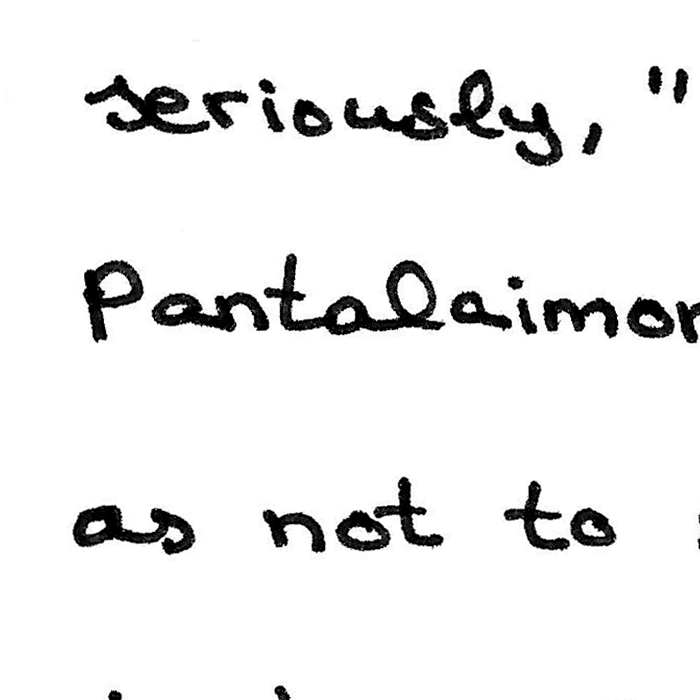 seriously,"
Pantalaimon
as not to